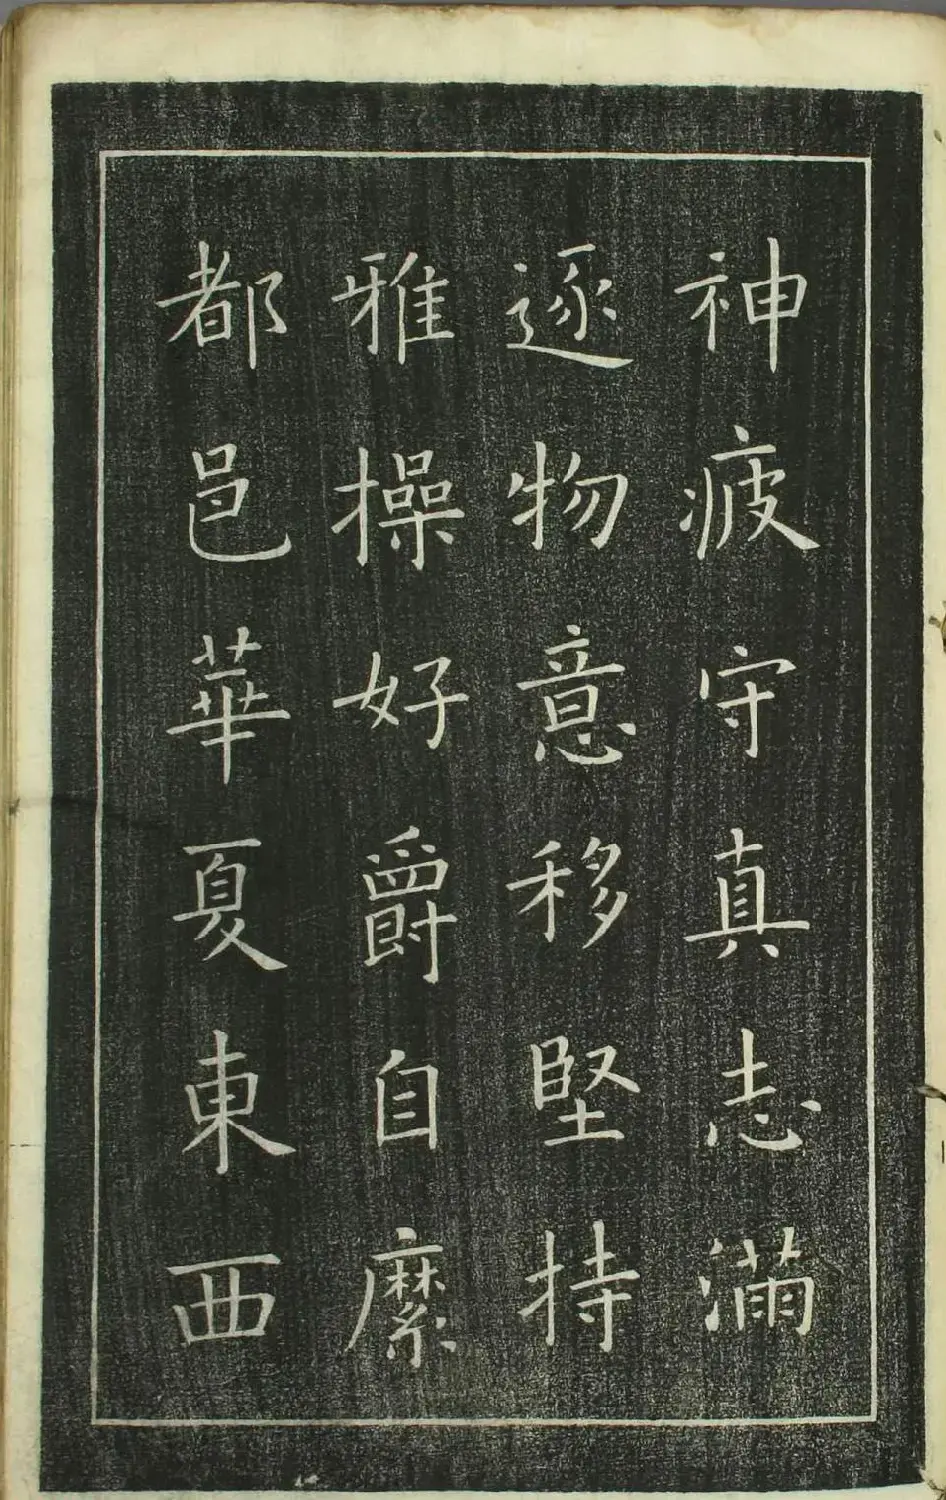 神疲守真志滿
逐物意移堅持
雅操好爵自縻
都邑華夏東西